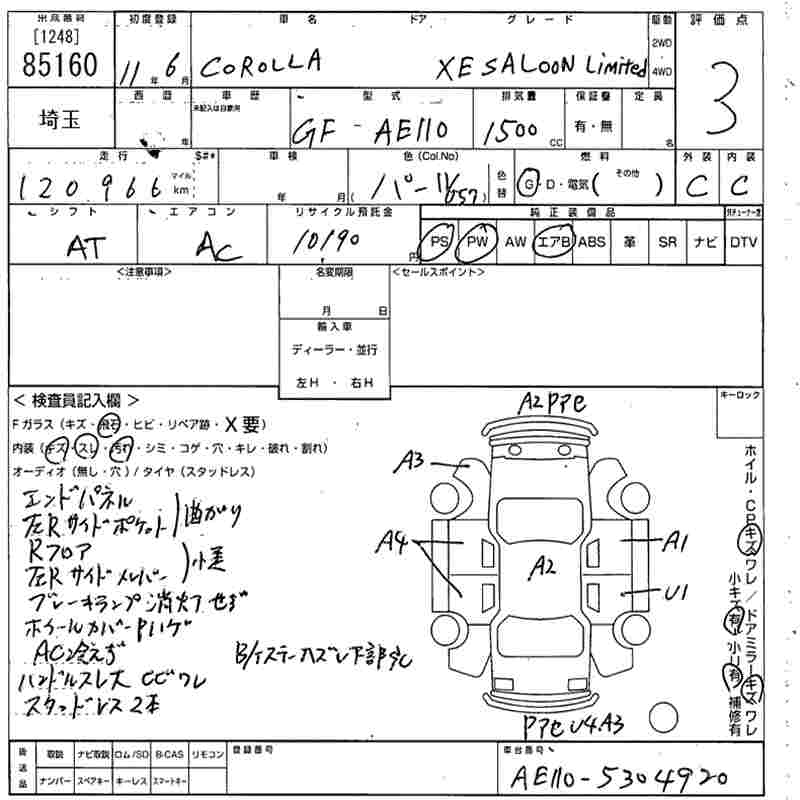 出品番号 初度登録 車名 ドア グレード 駆動 評価点
[1248]
85160 11年 6月 COROLLA XE SALOON Limited 2WD 4WD 3
埼玉 西暦 年 車歴 型式 排気量 保証書 定員
未記入は自家用
GF-AE110 1500 CC 有・無 名
走行 $#* 車検 色(Col.No) 燃料 外装 内装
120,966 マイル km 年 月 パール(057) 色替 G・D・電気( その他 ) C C
シフト エアコン リサイクル預託金 純正装備品
AT AC 10190 円 PS PW AW エアB ABS 革 SR ナビ DTV
<注意事項> 名変期限 <セールスポイント>
月 日
輸入車
ディーラー・並行
左H・右H
<検査員記入欄> キーロック
Fガラス(キズ・飛石・ヒビ・リペア跡・X要)
内装(キズ・スレ・汚れ・シミ・コゲ・穴・キレ・破れ・割れ)
オーディオ(無し・穴)/タイヤ(スタッドレス)
エンドパネル
左Rサイドポケット)曲がり
Rフロア
左Rサイドメンバー)小差
ブレーキランプ消灯せず
ホイールカバーPハゲ
AC冷えず
ハンドルスレ大 ヒビワレ
スタッドレス2本
A2
A3
A4
A2
A1
U1
U4.A3
ホイル・CPキズワレ/ドアミラーキズワレ
小キズ有 小U有 補修有
後送品 取説 ナビ取説 ロム/SD B-CAS リモコン 登録番号 車台番号
ナンバー スペアキー キーレス スマートキー
AE110-5304920